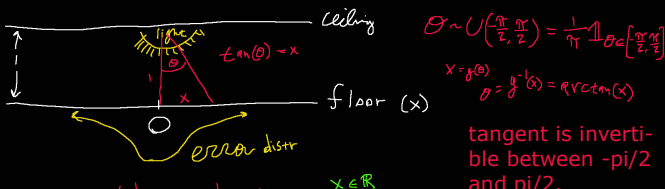 ceiling
light
θ
tan(θ) = x
1
x
floor (x)
0
error distr
θ ~ U(-π/2, π/2) = 1/π 𝟙 θ∈[-π/2, π/2]
x = g(θ)
θ = g⁻¹(x) = arctan(x)
tangent is inverti-
ble between -pi/2
and pi/2.
x ∈ ℝ